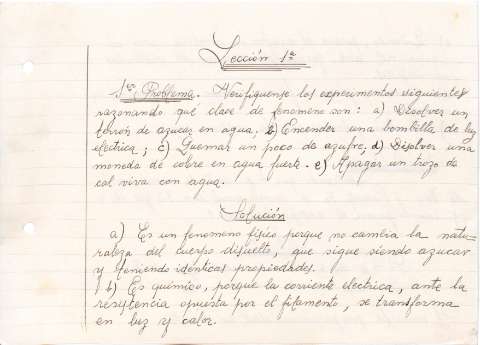 Lección 1ª
1er Problema. Verifíquense los experimentos siguientes
razonando qué clase de fenomeno son: a) Disolver un
terrón de azucar en agua; b) Encender una bombilla de luz
electrica; c) Quemar un poco de azufre; d) Disolver una
moneda de cobre en agua fuerte. e) Apagar un trozo de
cal viva con agua.
Solución
a) Es un fenomeno físico porque no cambia la natu-
raleza del cuerpo disuelto, que sigue siendo azucar
y teniendo identicas propiedades.
b) Es químico, porque la corriente electrica, ante la
resistencia opuesta por el filamento, se transforma
en luz y calor.